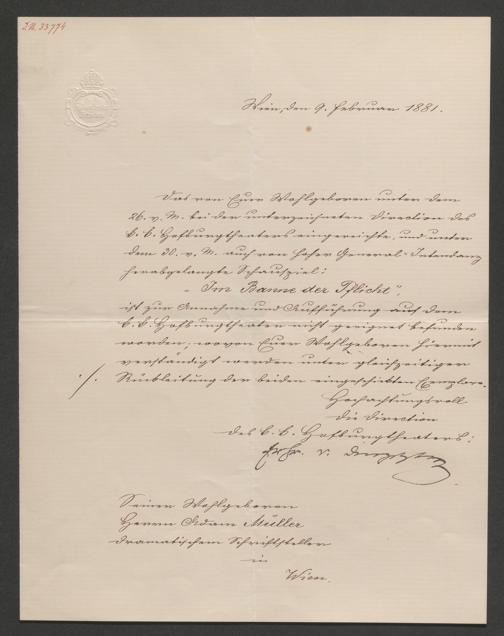 I.N. 33774
Wien, den 9. Februar 1881.
Das von Euer Wohlgeboren unter dem
26. v. M. bei der unterzeichneten Direction des
k. k. Hofburgtheaters eingereichte, und unter
dem 30. v. M. auch von hoher General-Intendanz
herabgelangte Schauspiel:
„Im Banne der Pflicht",
ist zur Annahme und Aufführung auf dem
k. k. Hofburgtheater nicht geeignet befunden
worden, wovon Euer Wohlgeboren hiermit
verständigt werden unter gleichzeitiger
./. Rückleitung der beiden eingeschickten Exemplare.
Hochachtungsvoll
die Direction
des k. k. Hofburgtheaters:
Frhr. v.
Seiner Wohlgeboren
Herrn Adam Müller
dramatischem Schriftsteller
in
Wien.